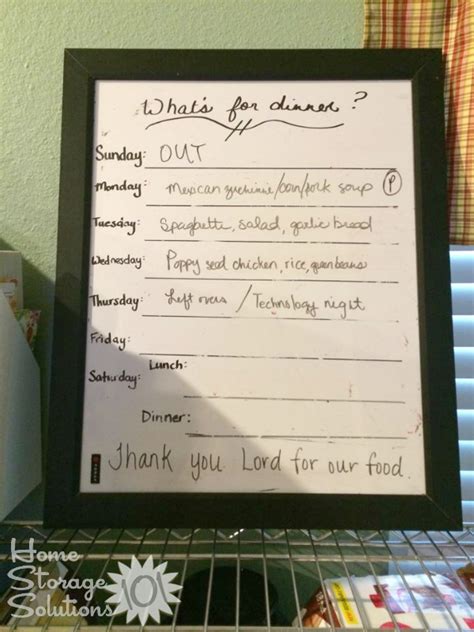 What's for dinner?
Sunday: OUT
Monday: Mexican zucchinie/corn/pork soup P
Tuesday: Spaghetti, salad, garlic bread
Wednesday: Poppy seed chicken, rice, green beans
Thursday: Left overs / Technology night
Friday:
Saturday: Lunch:
Dinner:
Thank you Lord for our food.
Home
Storage
Solutions 101